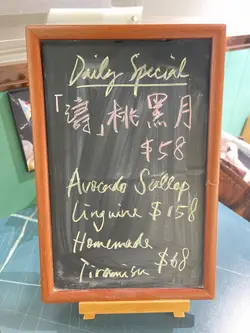 Daily Special
「濤」桃黑月
$58
Avocado Scallop
Linguine $158
Homemade
Tiramisu $68